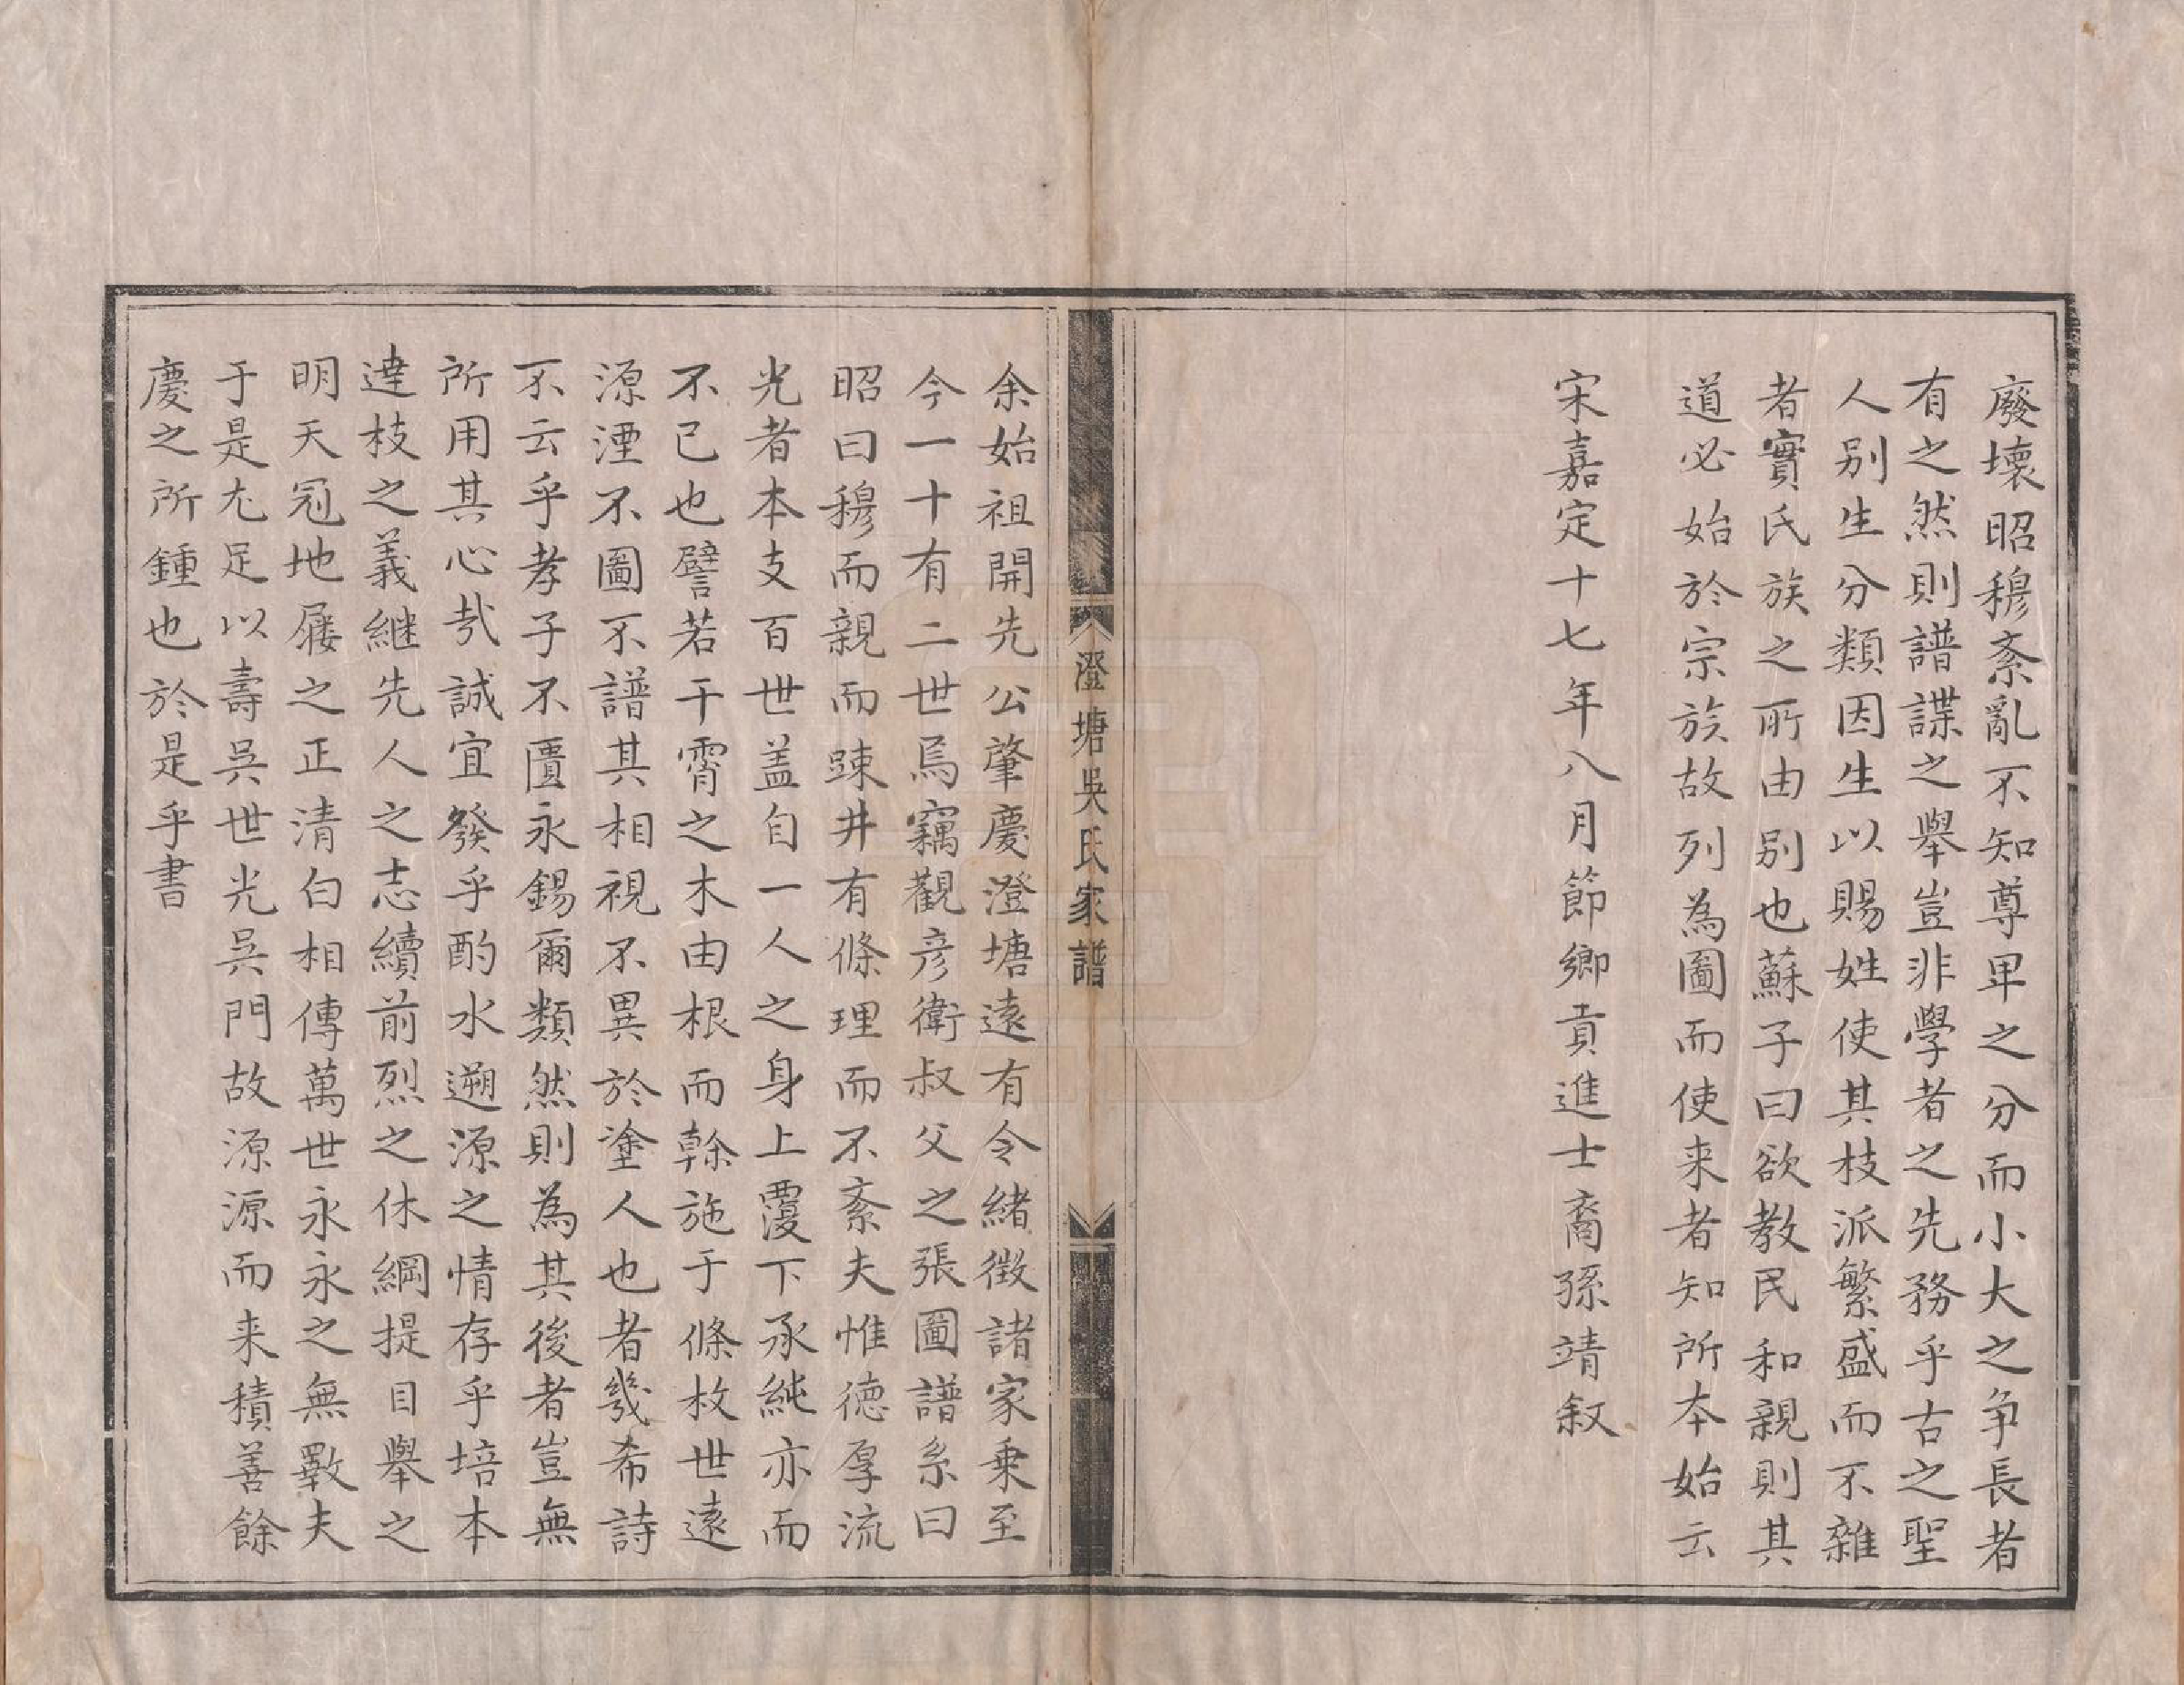 廢壞昭穆紊亂不知尊卑之分而小大之争長者
有之然則譜諜之舉豈非學者之先務乎古之聖
人别生分類因生以賜姓使其枝派繁盛而不雜
者實氏族之所由别也蘇子曰欲教民和親則其
道必始於宗族故列為圖而使来者知所本始云
宋嘉定十七年八月節鄉貢進士裔孫靖叙
澄塘吳氏家譜
余始祖開先公肇慶澄塘遠有令緒徴諸家乗至
今一十有二世焉竊觀彦衛叔父之張圖譜系曰
昭曰穆而親而踈井有條理而不紊夫惟德厚流
光者本支百世盖自一人之身上覆下承純亦而
不已也譬若干霄之木由根而榦施于條枚世遠
源湮不圖不譜其相視不異於塗人也者幾希詩
不云乎孝子不匱永錫爾類然則為其後者豈無
所用其心㢤誠宜發乎酌水遡源之情存乎培本
達枝之義継先人之志續前烈之休綱提目舉之
明天冠地屨之正清白相傳萬世永永之無斁夫
于是尤足以壽吳世光吳門故源源而来積善餘
慶之所鍾也於是乎書